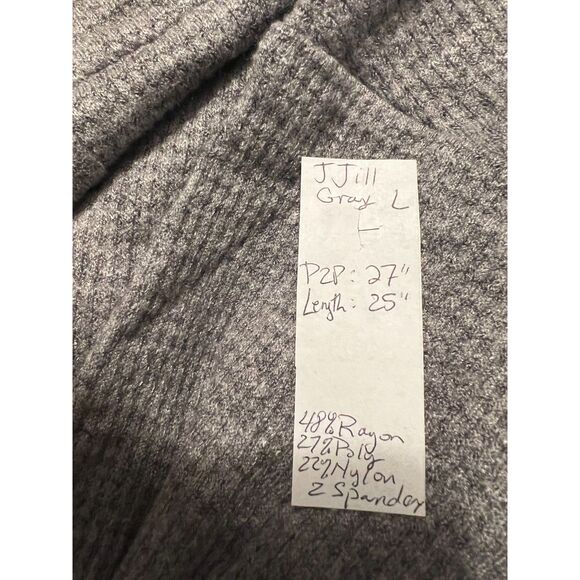 J Jill
Gray L
P2P: 27"
Length: 25"
48% Rayon
27% Poly
22% Nylon
2 Spandex